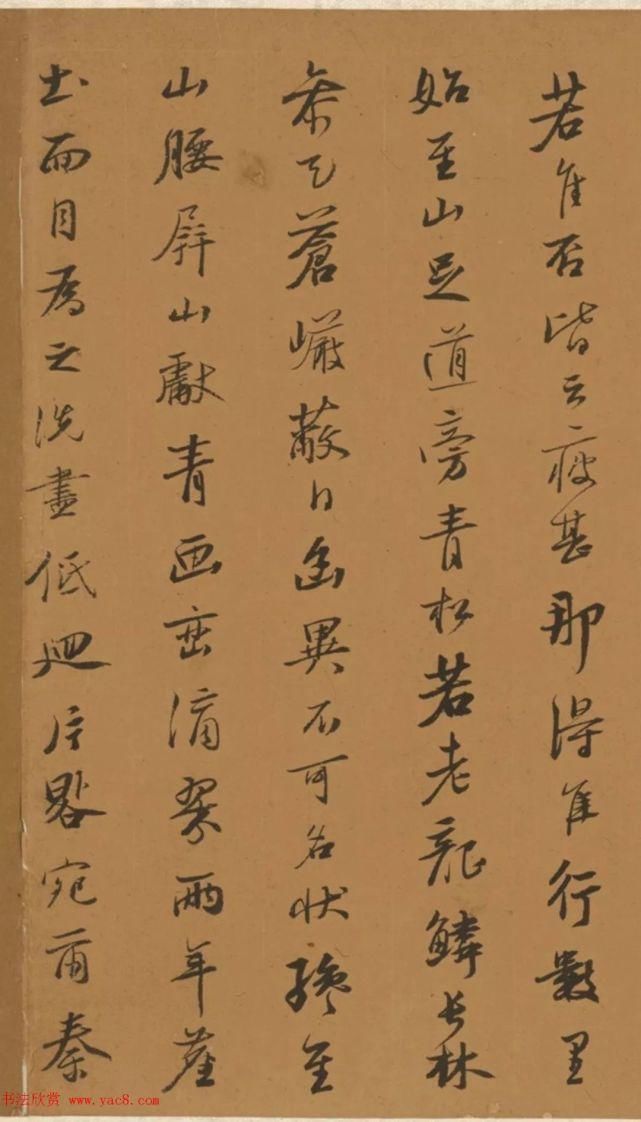 若隹否皆云瘦甚那得隹行數里
始至山足道旁青松若老龍鱗長林
参天蒼巘蔽日幽異不可名狀纔至
山腰屏山獻青画峦滴翠兩年塵
土面目爲之洗盡低迴片晷宛爾秦
书法欣赏 www.yac8.com